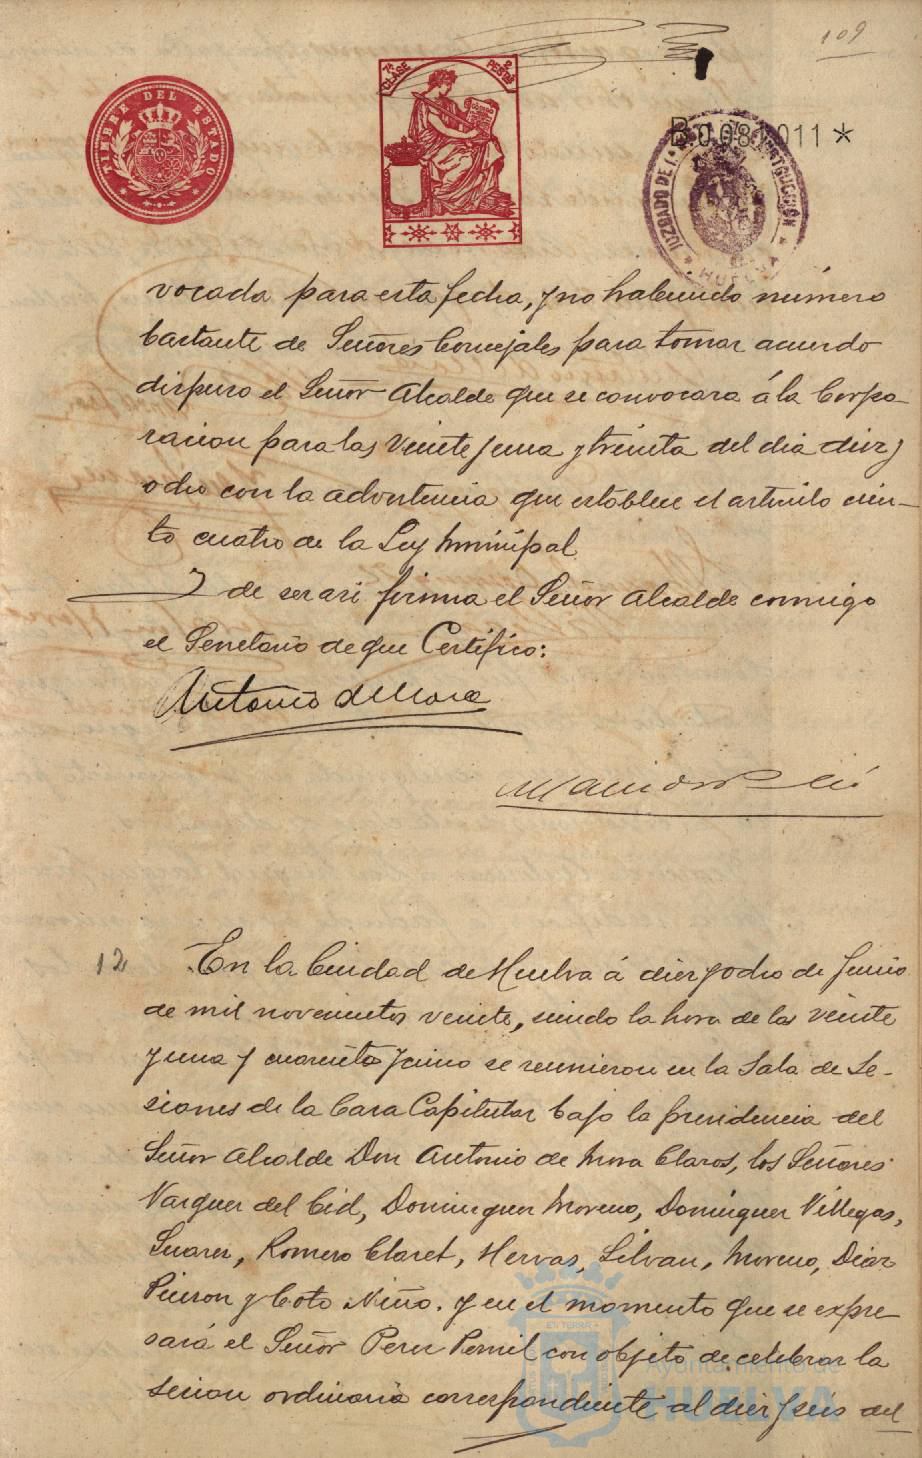 109
TIMBRE DEL ESTADO
7ª CLASE 2 PESTAS
B.0.081.011*
JUZGADO DE INSTRUCCIÓN
HUELVA
vocada para esta fecha, y no habiendo número
bastante de Señores Concejales para tomar acuerdo
dispuso el Señor Alcalde que se convocara á la Corpo-
racion para las veinte y una y treinta del dia diez y
ocho con la advertencia que establece el articulo cien-
to cuatro de la Ley Municipal
Y de ser asi firma el Señor Alcalde conmigo
el Secretario de que Certifico:
Antonio de Mora
12 En la Ciudad de Huelva á diez y ocho de Junio
de mil novecientos veinte, siendo la hora de las veinte
y una y cuarenta y cinco se reunieron en la Sala de Se-
siones de la Casa Capitular bajo la presidencia del
Señor Alcalde Don Antonio de Mora Claros, los Señores
Vazquez del Cid, Dominguez Moreno, Domínguez Villegas,
Suarez, Romero Claret, Hervas, Silvan, Moreno, Diaz
Pierson y Coto Niño. y en el momento que se expre-
sará el Señor Perez Pernil con objeto de celebrar la
sesion ordinaria correspondiente al diez y seis del
EN TERRA
Ayuntamiento de
HUELVA